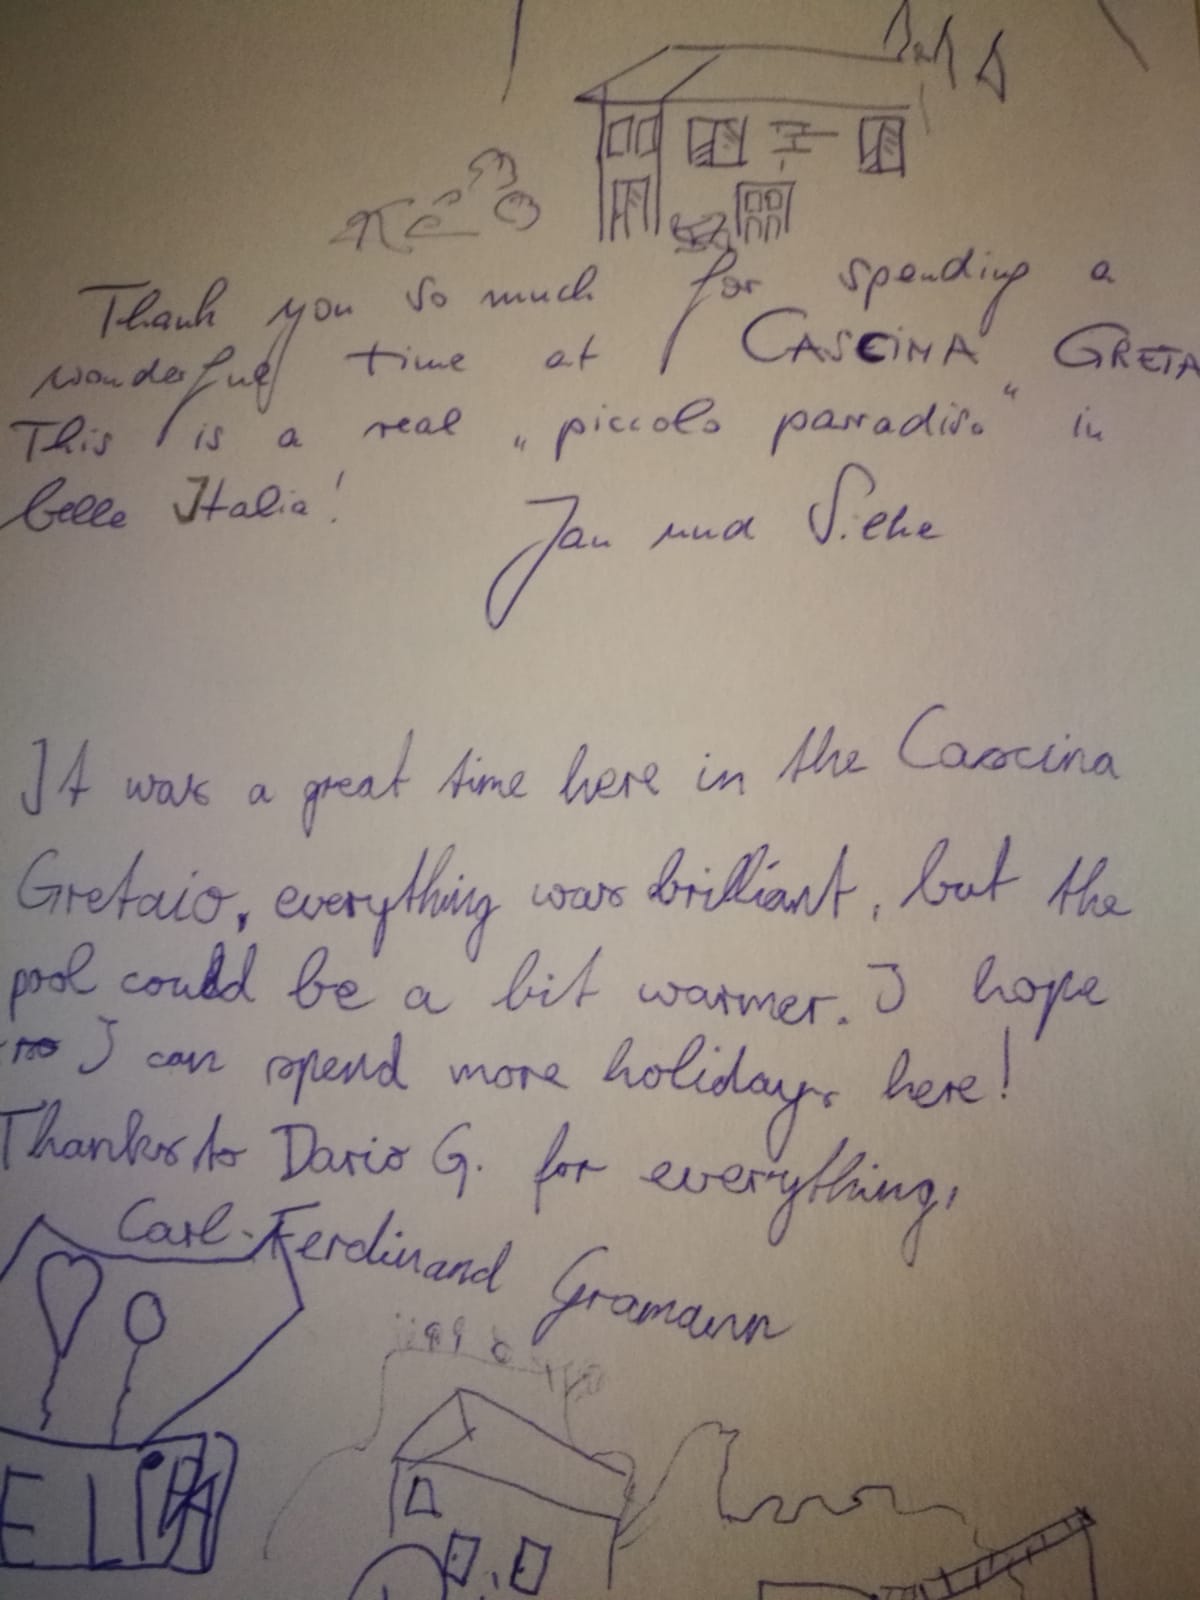 Thank you so much for spending a
wonderful time at CASCINA GRETA
This is a real „piccolo parradiso“ in
bella Italia!
Jan und
It was a great time here in the Cascina
Gretaio, everything was brilliant, but the
pool could be a bit warmer. I hope
I can spend more holidays here!
Thanks to Dario G. for everything,
Carl-Ferdinand Gramann